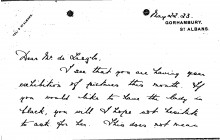 May 22. 23.
GORHAMBURY,
ST ALBANS.
Dear Mr. de Laszlo.
I see that you are having your
exhibition of pictures this month. If
you would like to have the lady in
black, you will I hope not hesitate
to ask for her. This does not mean